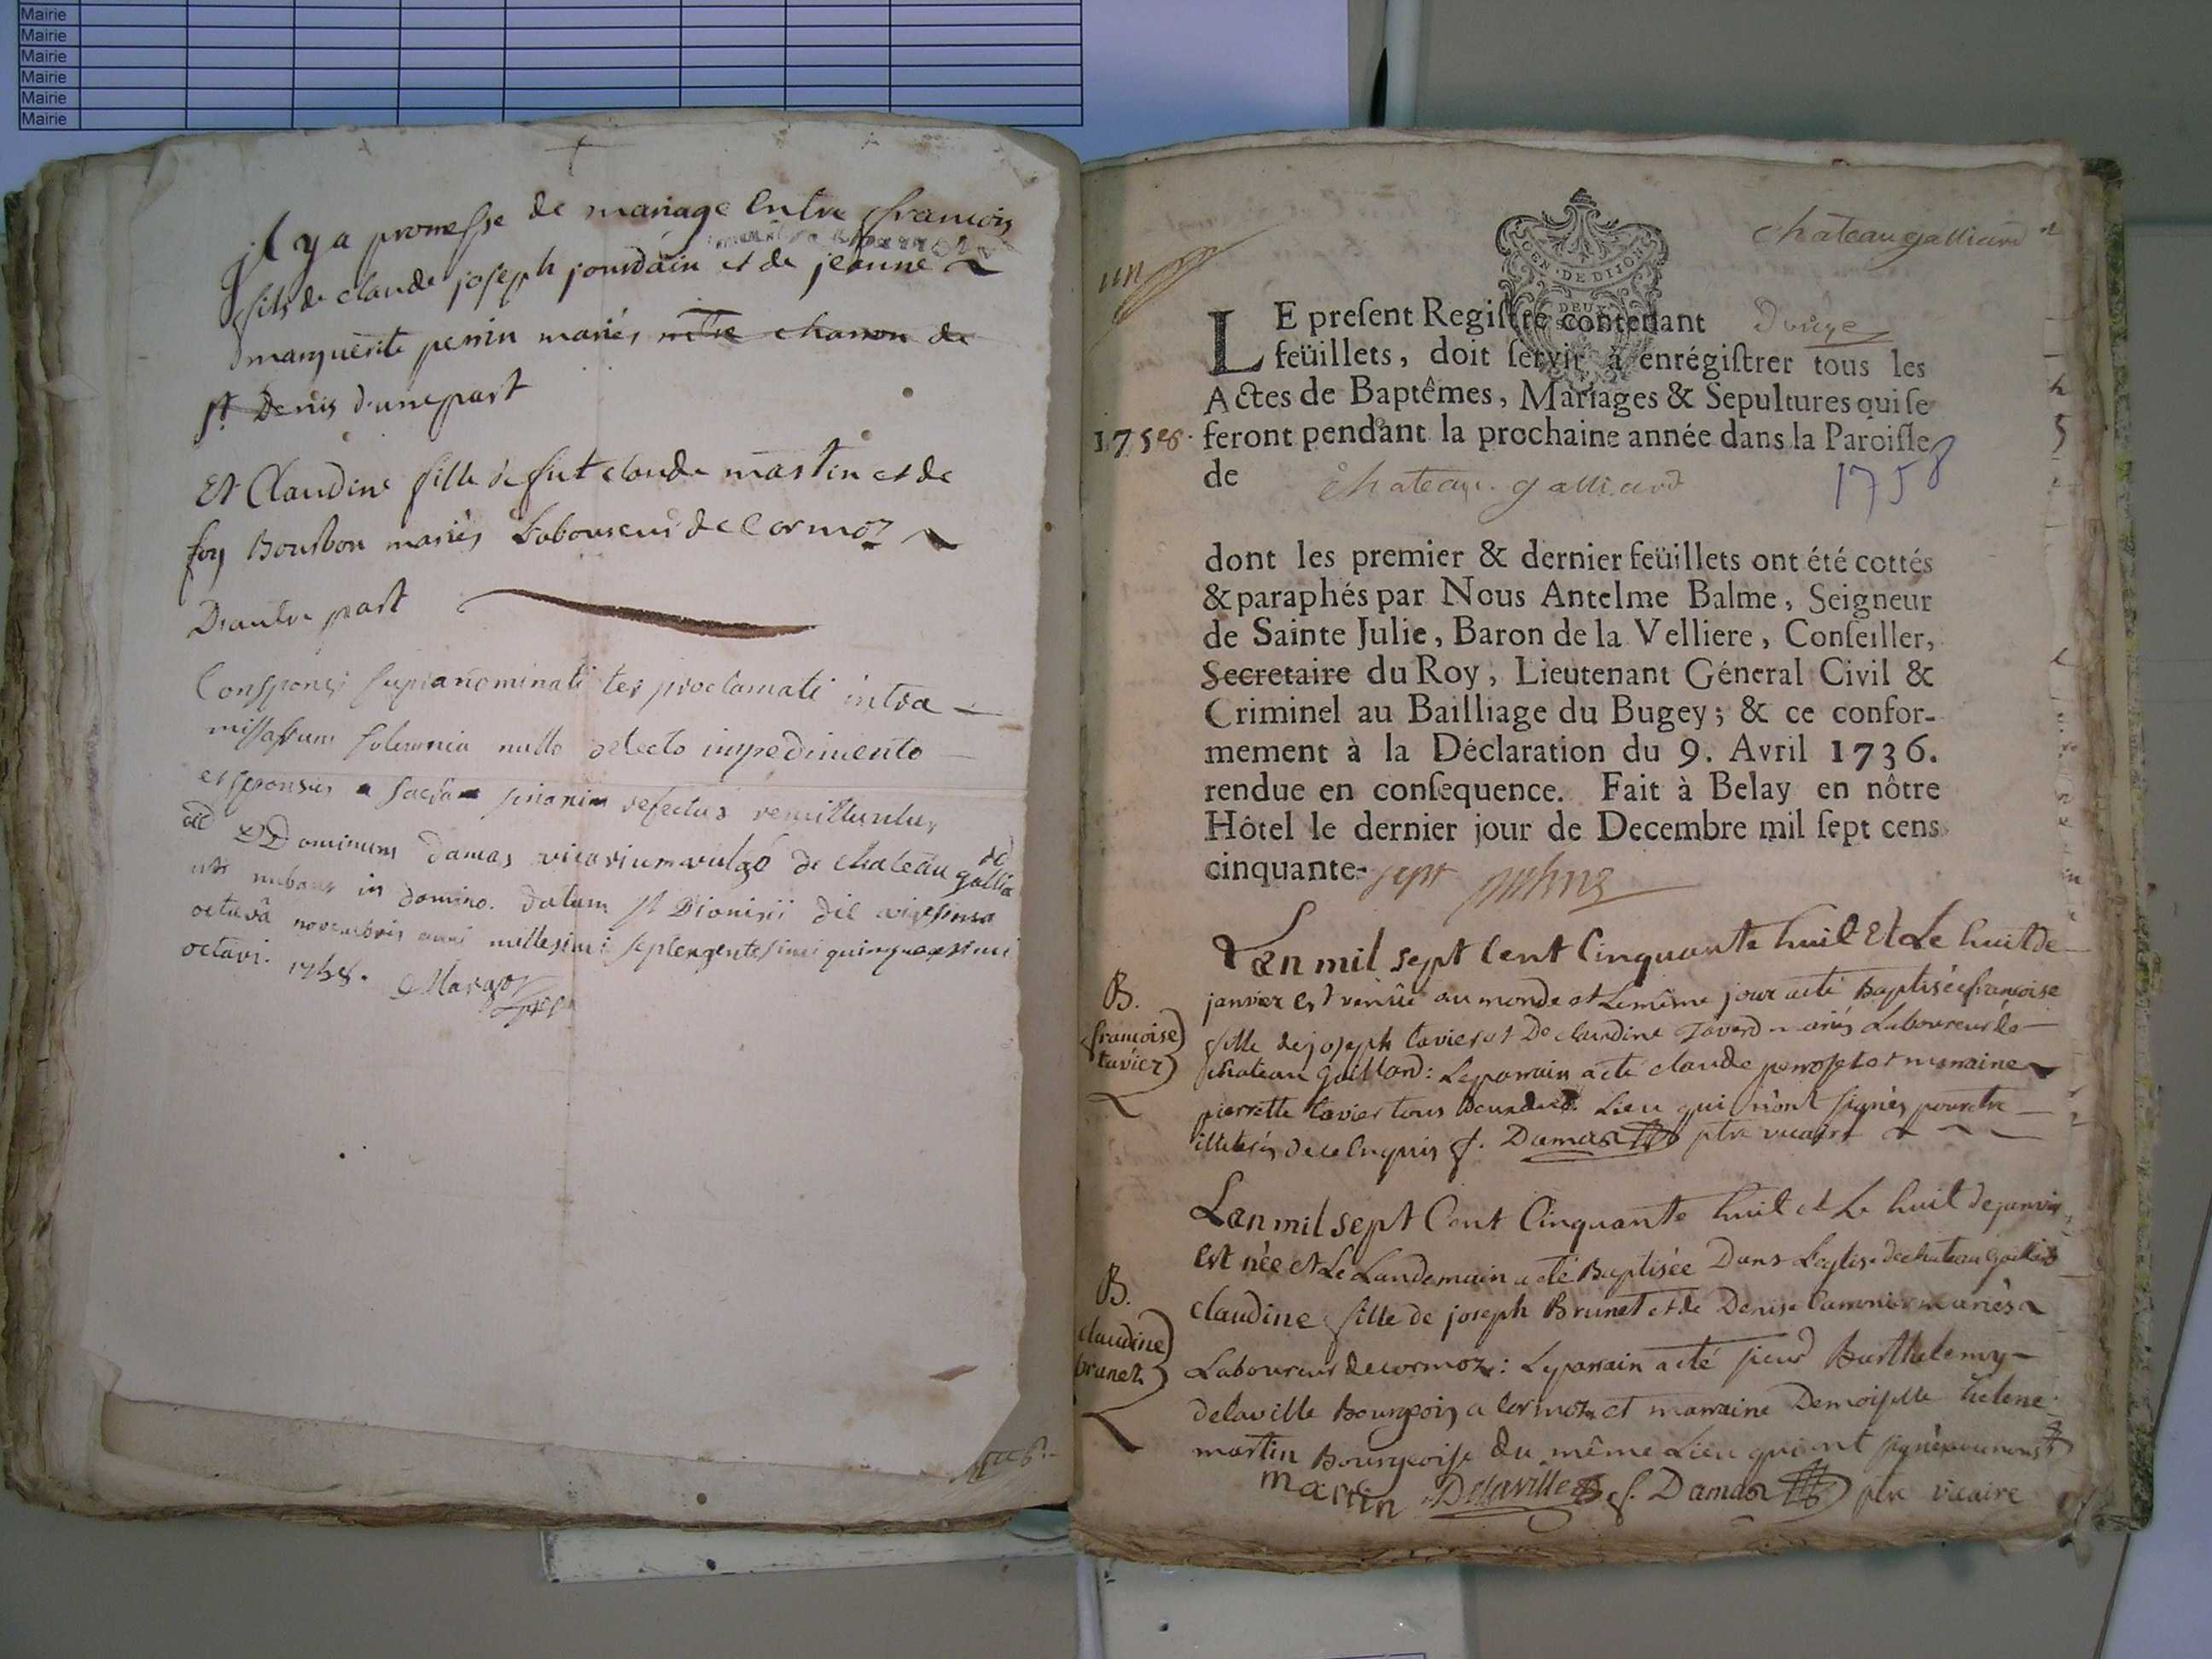 Mairie
Mairie
Mairie
Mairie
Mairie
Mairie
jl y a promesse de mariage Entre françois
fils de claude joseph jourdain et de jeanne
marguerite perrin mariés mtre charron de
st Denis d'une part
Et Claudine fille de fut claude martin et de
foy Bourbon mariés Laboureur de Cormoz
D'autre part
Consponsi supranominati ter proclamati intra
missarum solemnia nullo detecto impedimento
et sponsus sacra refectus remittuntur
ad DDominum damas vicarium vulgo de chateau gallia
ut nubant in domino. datum st Dionisii die vigesima
octava novembris anni millesimi septengentesimi quinquagesimi
octavi. 1758.
un
GEN · DE DIJON
DEUX
chateaugalliard
LE present Registre contenant douze
feüillets, doit servir à enrégistrer tous les
Actes de Baptêmes, Mariages & Sepultures qui se
1758. feront pendant la prochaine année dans la Paroisse
de chateau galliard
1758
dont les premier & dernier feüillets ont été cottés
& paraphés par Nous Antelme Balme, Seigneur
de Sainte Julie, Baron de la Velliere, Conseiller,
Secretaire du Roy, Lieutenant Géneral Civil &
Criminel au Bailliage du Bugey; & ce confor-
mement à la Déclaration du 9. Avril 1736.
rendue en consequence. Fait à Belay en nôtre
Hôtel le dernier jour de Decembre mil sept cens
cinquante-sept
B.
francoise
tavier
Lan mil sept Cent Cinquante huit Et Le huit de
janvier est venûe au monde et Lemême jour a eté Baptisée françoise
fille de joseph tavier et De claudine Tavard mariés Laboureur de
chateau Gaillard: Le parrain a eté claude perroset et marraine
pierrette tavier tous deux dud. Lieu qui n'ont signés pour etre
illiterés de ce Enquis f. Damas ptre vicaire
B.
claudine
brunet
Lan mil sept Cent Cinquante huit et Le huit de janvier
est née et Le Landemain a eté Baptisée Dans Leglise de chateau Gaillard
claudine fille de joseph Brunet et de Denise mariés
Laboureur de cormoz: Le parrain a eté sieur Barthelemy
delaville Bourgeois a Cormoz et marraine Demoiselle helene
martin Bourgeoise du même Lieu qui ont signé avec nous
martin Delaville f. Damas ptre vicaire